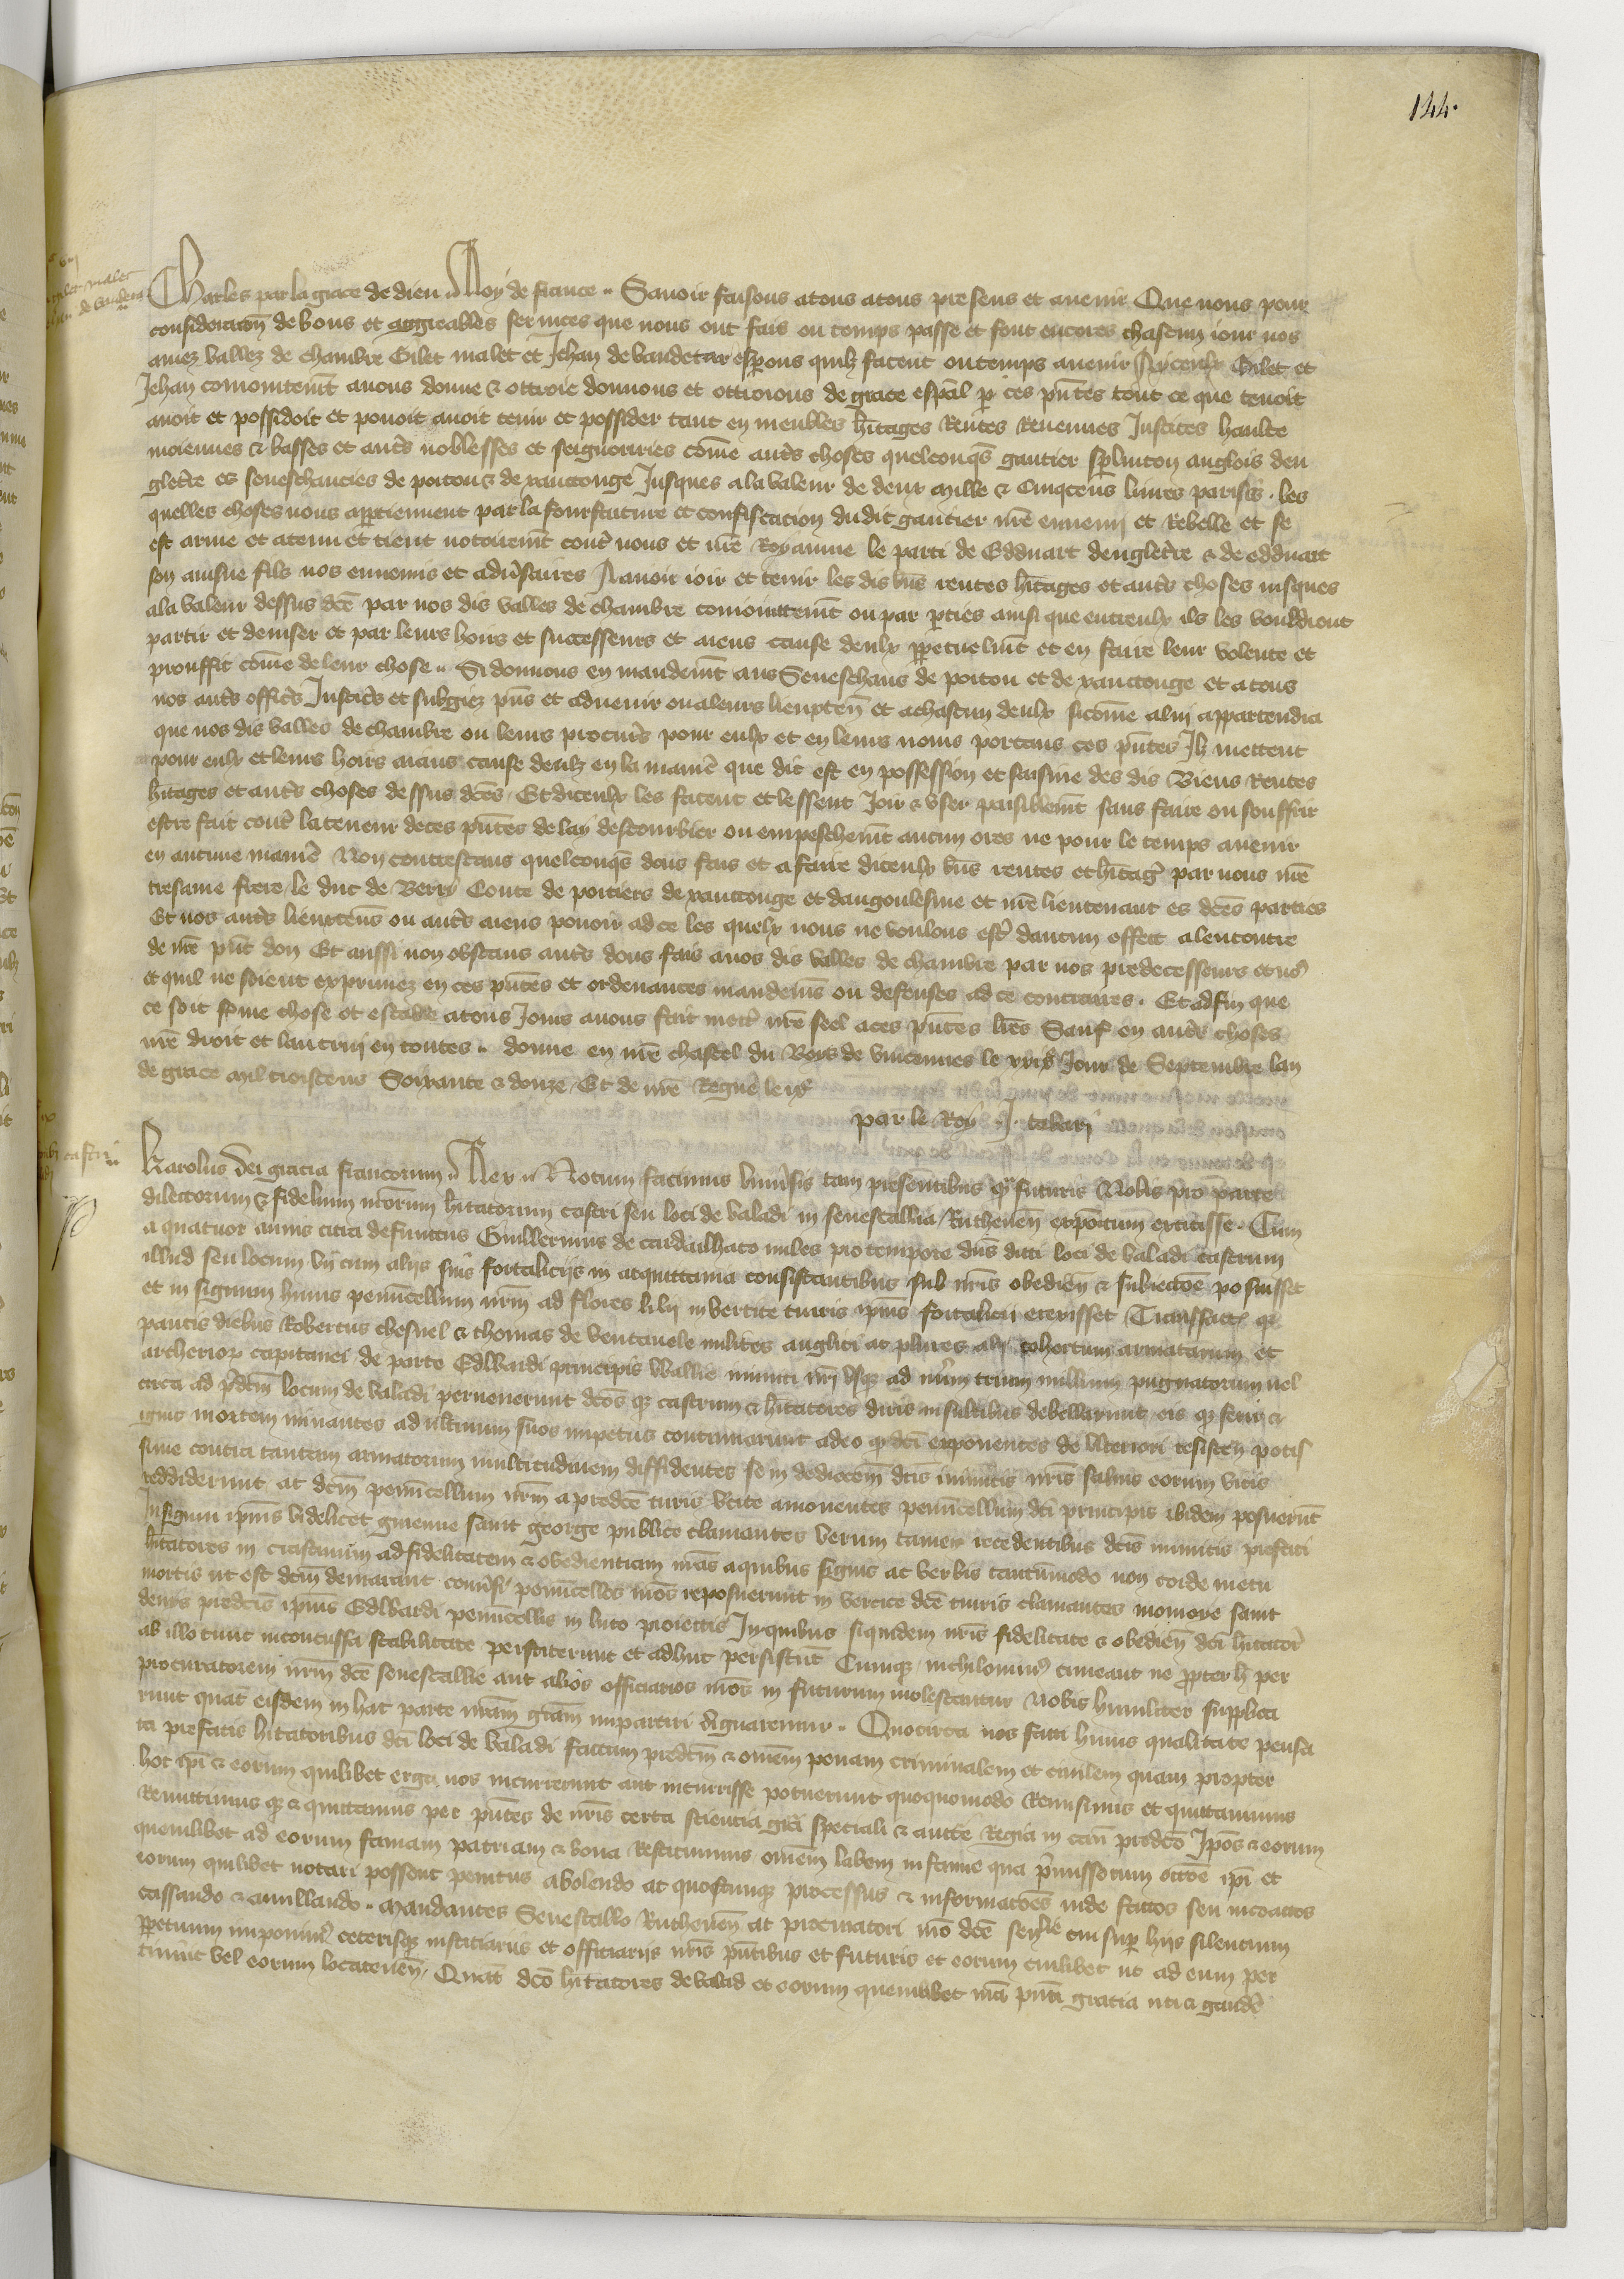 144.
Charles par la grace de dieu Roy de france Savoir faisons atous atous presens et avenir Que nous pour
consideracõn de bons et aggreables services que nous ont fais ou temps passe et font encores chascun iour nos
amez vallez de chambre Gilet malet et Jehan de vaudetar esperons quilz facent ou temps avenir A yceulx Gilet et
Jehan conioinctemt avons donne & ottroie donnons et ottroions de grace espãl p ces pñtes tout ce que tenoit
avoit et possidoit et povoit avoir tenir et possider tant en meubles hitages Rentes Revenues Justices haulte
moiennes & basses et autrs noblesses et seignouries cõme autrs choses quelconqs gautier anglois den
gletre es seneschaucies de poitou & de xanctonge Jusques ala valeur de deux mille & Cinqcens livres parisis . les
quelles choses nous aptiennent par la fourfaiture et confiscacion dudit gautier nre ennemy et Rebelle et se
est arme et atenu et tient notoiremt contr nous et nre Royaume le parti de Edduart dengletre & de edduart
son ainsne filz nos ennemis et advsaires A avoir ioir et tenir les dis bns rentes hitages et autrs choses iusques
ala valeur dessus dce par nos dis valles de chambre conioinctemt ou par pties ainsi que entreulx ils les vouldrent
partir et deviser et par leurs hoirs et successeurs et aiens cause deulx ppetuelmt et en faire leur volente et
prouffit cõme de leur chose Si donnons en mandemt aus Seneschaus de poitou et de xanctonge et a tous
nos autrs offics Justics et subgiez pns et advenir ou aleurs lieuxten et achascun deulx sicõme alui appartendra
que nos dis valles de chambre ou leurs procurs pour eulx et en leurs noms portans ces pñtes Ilz mettent
pour eulx et leurs hoirs aians cause deulz en la manie que dit est en possession et saisine des dis Biens Rentes
hitages et autrs choses dessus dces . Et diceulx les facent et lessent Joir & user paisiblemt sans faire ou souffrir
estre fait contr la teneur de ces pñtes delay destourbier ou empeschemt aucun ores ne pour le temps avenir
en aucune manie Non contrestans quelconqs dons fais et a faire diceulx bns rentes et hitags par nous nre
tresame frere le duc de Berry Conte de poitiers de xanctonge et dangoulesme et nre lieutenant es dces parties
Et nos autrs lieuxtens ou autrs aiens povoir ad ce les quelx nous ne voulons estr daucun effect alencontre
de nre pnt don Et aussi non obstans autrs dons fais anos dis valles de chambre par nos predecesseurs et no9
et quil ne soient exprimez en ces pñtes et ordenances mandemens ou defenses ad ce contraires . Et adfin que
ce soit ferme chose et estable atous Jours avons fait mettr nre seel aces pñtes lres Sauf en autrs choses
nre droit et lautruy en toutes donne en nre chastel du Bois de vincennes le Jour de Septembre lan
de grace mil troiscens Soixante & douze . Et de nre Regne le ixe
par le Roy J. tabari
Karolus dei gracia francorum Rex Notum facimus universis tam presentibus q futuris Nobis pro parte
dilectorum & fidelium nrorum hitatorum castri seu loci de valadi in senescallia Ruthenen expõitum extitisse . Cum
a quatuor annis citra defunctus Guillermus de cardailhaco miles pro tempore dns dicti loci de valadi castrum
illud seu locum vij cum aliis suis fortaliciis in acquittania consistantibus sub nris obedien & subiectõe posuisset
et in signum huius penucellum nrm ad flores lilij in vertice turris ipius fortalicii erexisset Transsactis q
paucis diebus Robertus chesnel & thomas de ventavole milites anglici ac plures alij cohortum armatarum et
archerior capitanei de parte Edwardi principis wallie inimici nri usq ad nrum trium millium pugnatorum vel
circa ad pdcm locum de valadi pervenerunt dcos q castrum & hitatores diris insultibus debellarunt eis q ferri &
ignis mortem minantes ad ultimum suos impetus continuarunt adeo q dci exponentes de ulteriori resisten potis
sime contra tantam armatorum multitudinem diffidentes se in dedicõem dcis inimicis nris salvis eorum vitis
reddiderunt ac dcm penucellum nrm a predce turis vtice amoventes penucellum dci principis ibidem posuerut
Insignum ipius videlicet guienne saint george publice clamantes verum tamen recedentibus dcis inimicis prefati
hitatores in crastinum ad fidelitatem & obedientiam nras a quibus signis ac verbis tantumodo non corde metu
mortis ut est dcm deviarant conversi penucellos nros reposuerunt in vertice dce turris clamantes monioye saint
denis predcis ipius Edwardi penucellis in luto proiectis In quibus siquidem nris fidelitate & obedien dci hitator
ab illo tunc inconcussa stabilitate perstiterunt et adhuc persistut Cumq nichilominus timeant ne ppter h per
procuratorem nrm dce senescallie aut alios officiarios nros in futurum molestentur Nobis humiliter supplica
runt quat eisdem in hac parte nram gram impartiri dignaremur . Quocirca nos facti huius qualitate pensa
ta prefatis hitatoribus dci loci de valadi factum predcm & omem penam criminalem et civilem quam propter
hoc ipi & eorum quilibet erga nos incurrerunt aut incurrisse potuerunt quoquomodo Remisimus et quittavimus
Remittimus q & quittamus per pñtes de nris certa sciencia gra speciali & aucte Regia in casu predco Ipos & eorum
quemlibet ad eorum famam patriam & bona Restituimus omem labem infamie qua pmissorum occõe ipi et
eorum quilibet notari possent penitus abolendo ac quoscunq processus & informacões inde factos seu inchoatos
cassando & anullando . Mandantes Senescallo Ruthenen ac procuratori nro dce senlie cui sup hijs silencium
ppetuum imponim9 ceterisq iusticiariis et officiarijs nris pñtibus et futuris et eorum cuilibet ut ad eum per
tinuit vel eorum locatenen . Quat dcos hitatores de valadi et eorum quemlibet nra pñti gracia uti & gaude